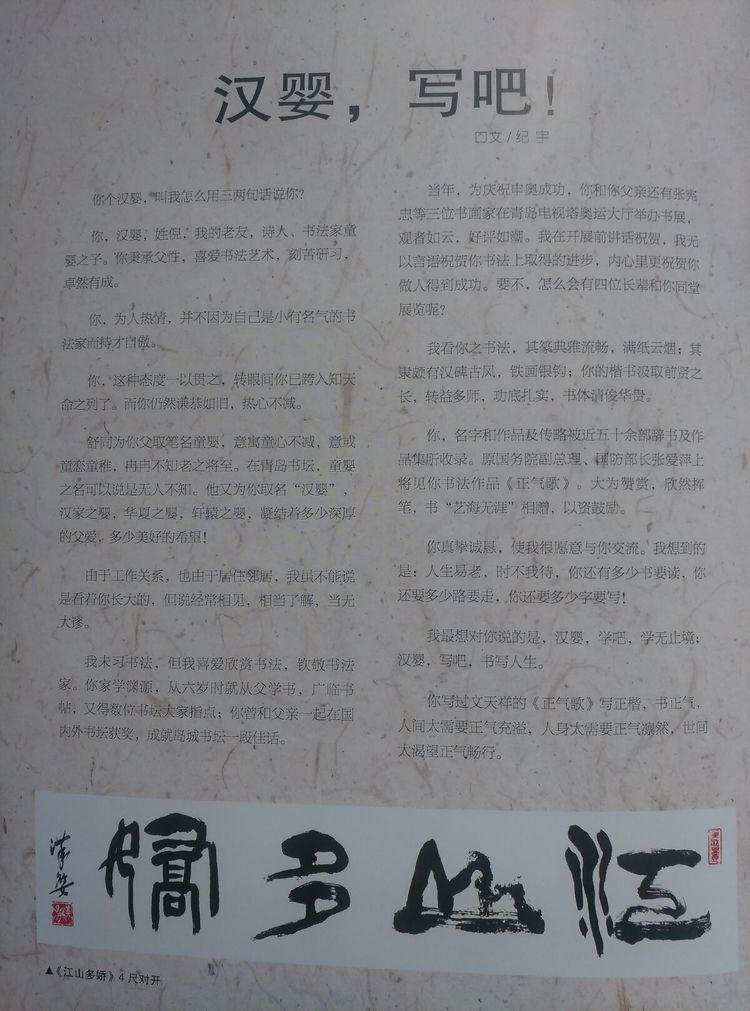 汉婴，写吧！
文/纪宇
你个汉婴，叫我怎么用三两句话说你？
你，汉婴，姓倪，我的老友，诗人、书法家童
婴之子。你秉承父性，喜爱书法艺术，刻苦研习，
卓然有成。
你，为人热情，并不因为自己是小有名气的书
法家而持才自傲。
你，这种态度一以贯之，转眼间你已跨入知天
命之列了。而你仍然谦恭如旧，热心不减。
舒同为你父取笔名童婴，意寓童心不减，意或
童恋童稚，冉冉不知老之将至。在青岛书坛，童婴
之名可以说是无人不知。他又为你取名“汉婴”，
汉家之婴，华夏之婴，轩辕之婴，凝结着多少深厚
的父爱，多少美好的希望！
由于工作关系，也由于居住邻居，我虽不能说
是看着你长大的，但说经常相见，相当了解，当无
大谬。
我未习书法，但我喜爱欣赏书法，钦敬书法
家。你家学渊源，从六岁时就从父学书，广临书
帖，又得数位书坛大家指点；你曾和父亲一起在国
内外书坛获奖，成就岛城书坛一段佳话。
当年，为庆祝申奥成功，你和你父亲还有张宪
忠等三位书画家在青岛电视塔奥运大厅举办书展，
观者如云，好评如潮。我在开展前讲话祝贺，我无
以言语祝贺你书法上取得的进步，内心里更祝贺你
做人得到成功。要不，怎么会有四位长辈和你同堂
展览呢？
我看你之书法，其篆典雅流畅，满纸云烟；其
隶颇有汉碑古风，铁画银钩；你的楷书汲取前贤之
长，转益多师，功底扎实，书体清俊华贵。
你，名字和作品及传略被近五十余部辞书及作
品集所收录。原国务院副总理、国防部长张爱萍上
将见你书法作品《正气歌》。大为赞赏，欣然挥
笔，书“艺海无涯”相赠，以资鼓励。
你真挚诚恳，使我很愿意与你交流。我想到的
是：人生易老，时不我待，你还有多少书要读，你
还要多少路要走，你还要多少字要写！
我最想对你说的是，汉婴，学吧，学无止境；
汉婴，写吧，书写人生。
你写过文天祥的《正气歌》写正楷，书正气，
人间太需要正气充溢，人身太需要正气凛然，世间
太渴望正气畅行。
江山多娇
汉婴
▲《江山多娇》4尺对开